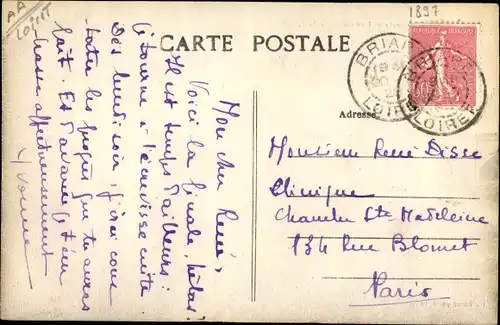 AA
LOIRET
1897
CARTE POSTALE
RÉPUBLIQUE FRANÇAISE
50
BRIARE
LOIRET
BRIARE
LOIRET
Adresse
Monsieur René Disse
Clinique
Chambre Ste Madeleine
134 Rue Blomet
Paris
Mon cher René,
Voici la finale, hélas!
Il est temps d'ailleurs:
tourne à l'écrevisse cuite
Dès lundi soir, j'irai
les progrès que tu auras
fait. Et d'avance
affectueusement
Yvonne